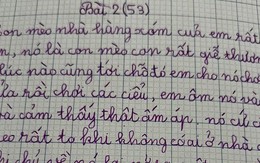 Bài 2 (53)
con mèo nhà hàng xóm của em rất
n, nó là con mèo con rất dễ thươn
lúc nào cũng tới chỗ đó em cho nó ch
ủa rồi chơi các kiểu, em ôm nó và
và cảm thấy thật ấm áp, nó cứ c
eo rất to khi không có ai ở nhà